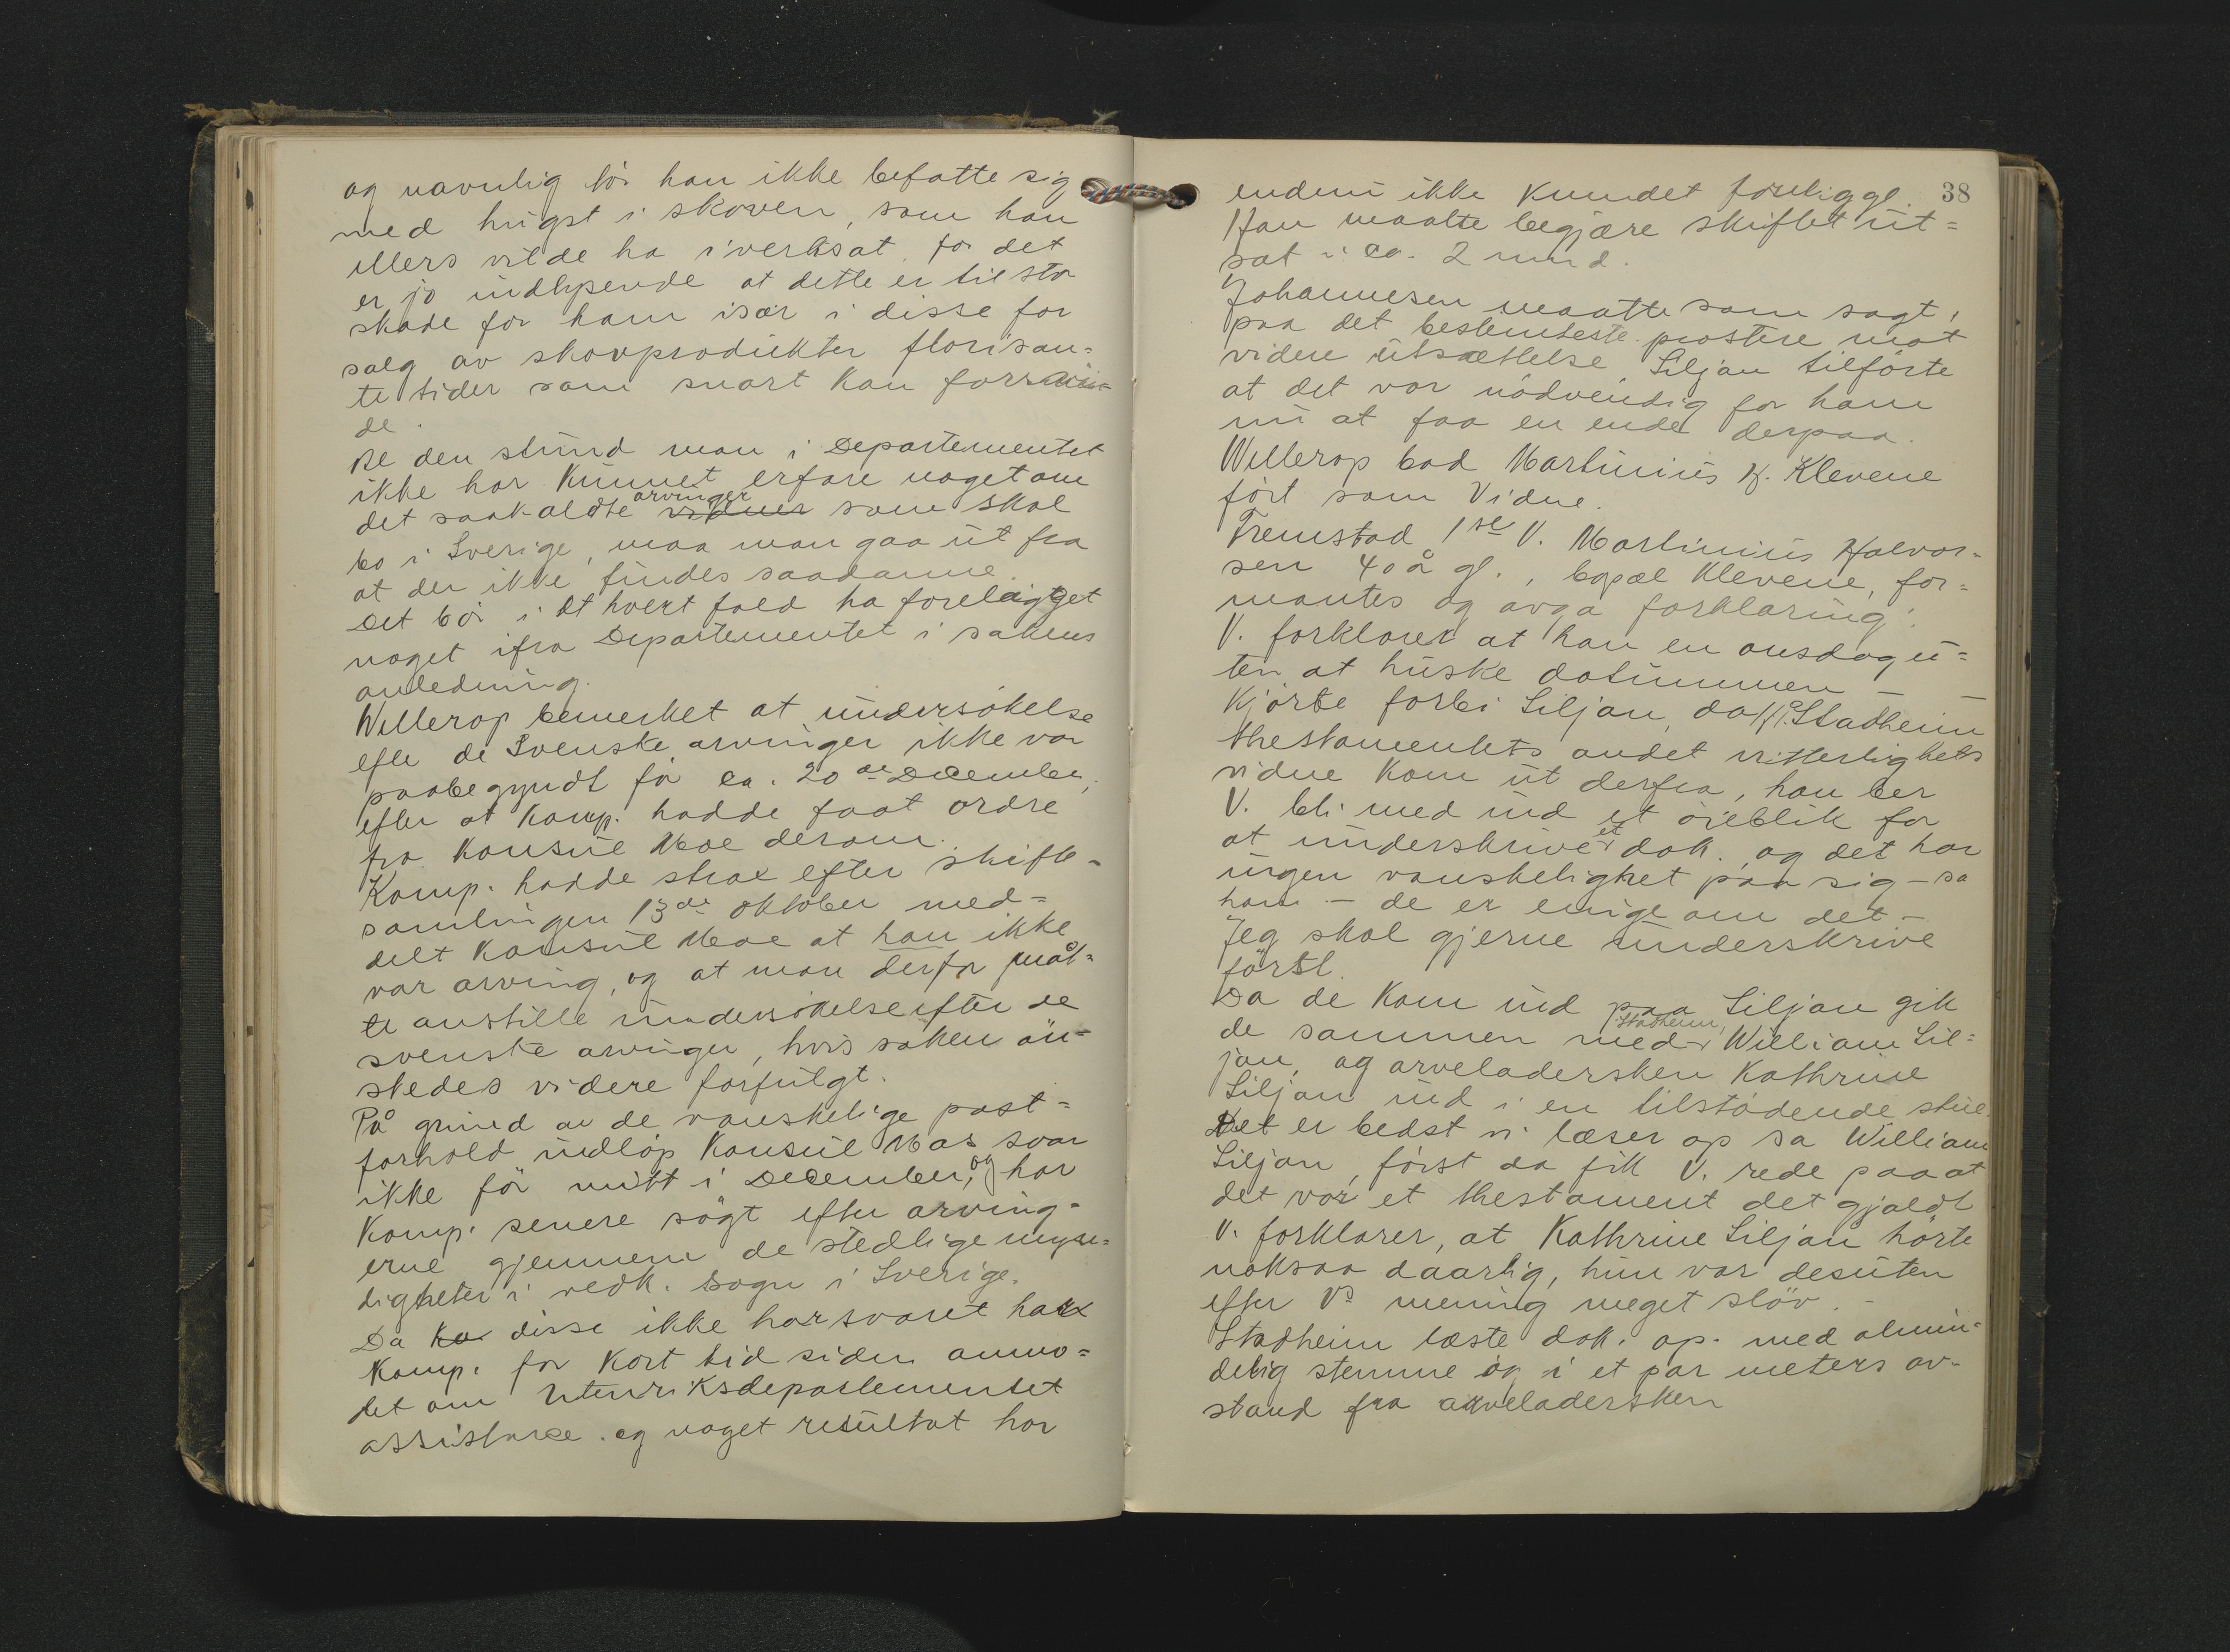 og navnlig bör han ikke befatte sig
med hugst i skoven, som han
ellers vilde ha iverksat, for det
er jo indlysende at dette er til stor
skade for ham især i disse for
salg av skovprodukter florisan=
te tider som snart kan forsvin=
de.
Al den stund man i Departementet
ikke har kunnet erfare noget om
det saakaldte arvinger som skal
bo i Sverige, maa man gaa ut fra
at der ikke findes saadanne.
Det bör i et hvert fald ha foreligget
noget ifra Departementet i sakens
anledning.
Willerop bemerket at undersökelse
efter de Svenske arvinger ikke var
paabegyndt för ca. 20de December,
efter at Komp. hadde faat ordre
fra Konsul Moe derom.
Komp. hadde strax efter skifte=
samlingen 13de oktober med=
delt Konsul Moe at han ikke
var arving, og at man derfor måt=
te anstille undersökelse efter de
svenske arvinger, hvis saken ön=
skedes videre forfulgt.
På grund av de vanskelige post=
forhold indlöp Konsul Moes svar
ikke för midt i December, og har
Komp. senere sögt efter arving=
erne gjennem de stedlige myn=
digheter i vedk. sogn i Sverige.
Da disse ikke har svaret har
Komp. for kort tid siden anmo=
det om Utenriksdepartementet
assistance. og noget resultat har
38
endnu ikke kundet foreligge.
Han maatte begjære skiftet ut=
sat i ca. 2 mnd.
Johannesen maatte som sagt,
paa det bestemteste protstere mot
videre utsættelse, Siljan tilförte
at det var nödvendig for ham
nu at faa en ende derpaa.
Willerop bad Martinius H. Klevene
fört som Vidne.
Fremstod 1ste V. Martinius Halvor=
sen 40 å gl., bopæl Klevene, for=
mantes og avga forklaring:
V. forklarer at han en onsdag u=
ten at huske datummen –
kjörte forbi Siljan, da H. P. Stadheim
thestamentets andet vitterlighets
vidne kom ut derfra, han ber
V. bli med ind et öieblik for
at underskrive et dok., og det har
ingen vanskelighet paa sig – sa
han – de er enige om det –
Jeg skal gjerne underskrive
först.
Da de kom ind paa Siljan gik
de sammen med Stadheim, William Sil=
jan, og arveladersken Kathrine
Siljan ind i en tilstödende stue.
Det er bedst vi læser op sa William
Siljan, först da fik V. rede paa at
det var et thestament det gjaldt
V. forklarer, at Kathrine Siljan hörte
noksaa daarlig, hun var desuten
efter Vs mening meget slöv. –
Stadheim læste dok. op. med almin=
delig stemme og i et par meters av=
stand fra arveladersken